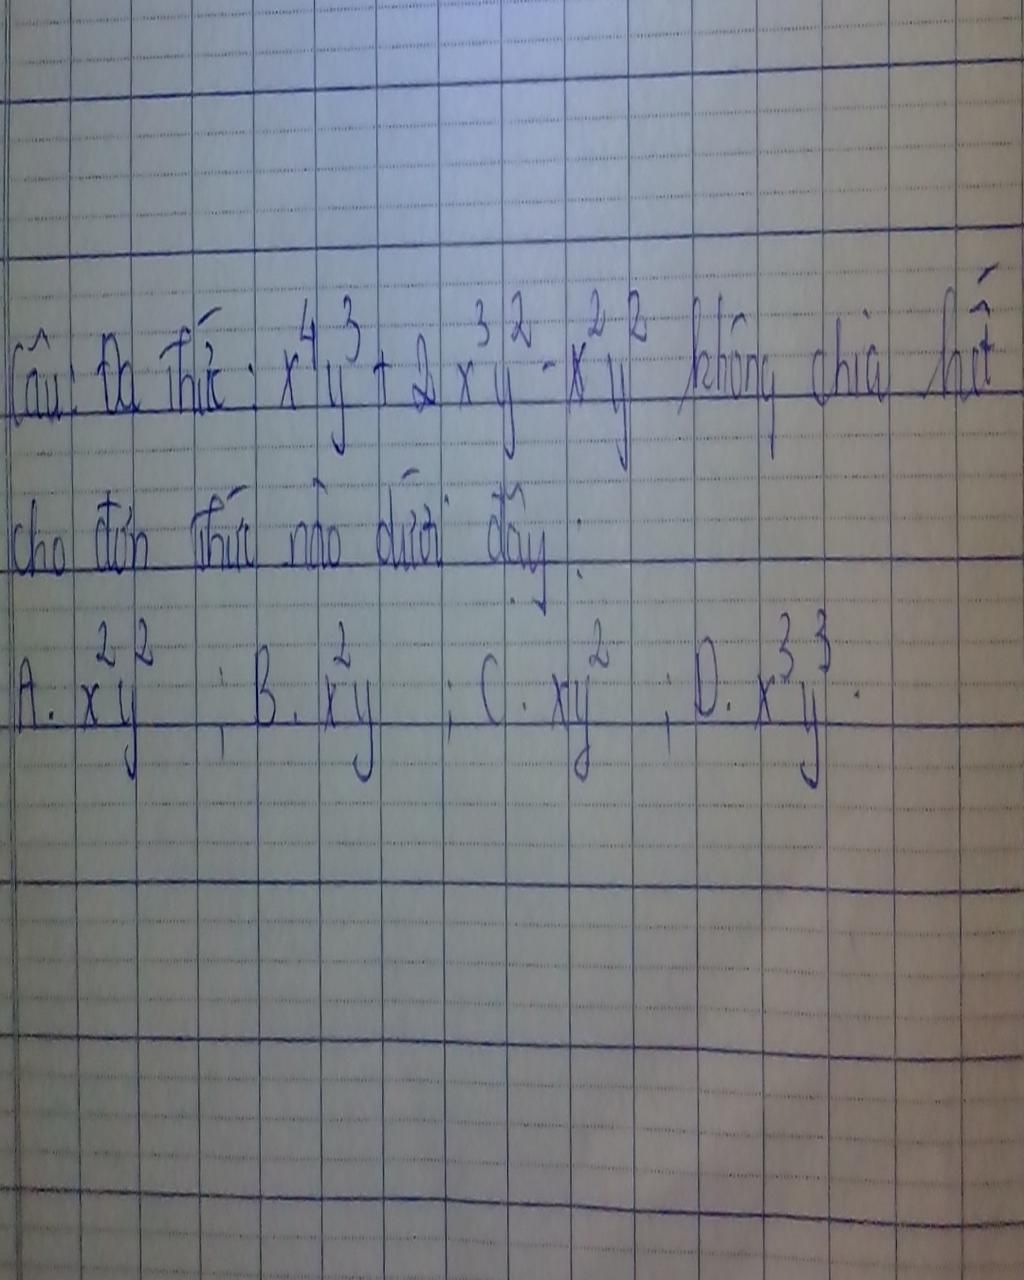 Câu: Đa thức: x⁴y³ + 2x³y² - x²y² không chia hết
cho đơn thức nào dưới đây:
A. x²y² ; B. x²y ; C. xy² ; D. x³y³.